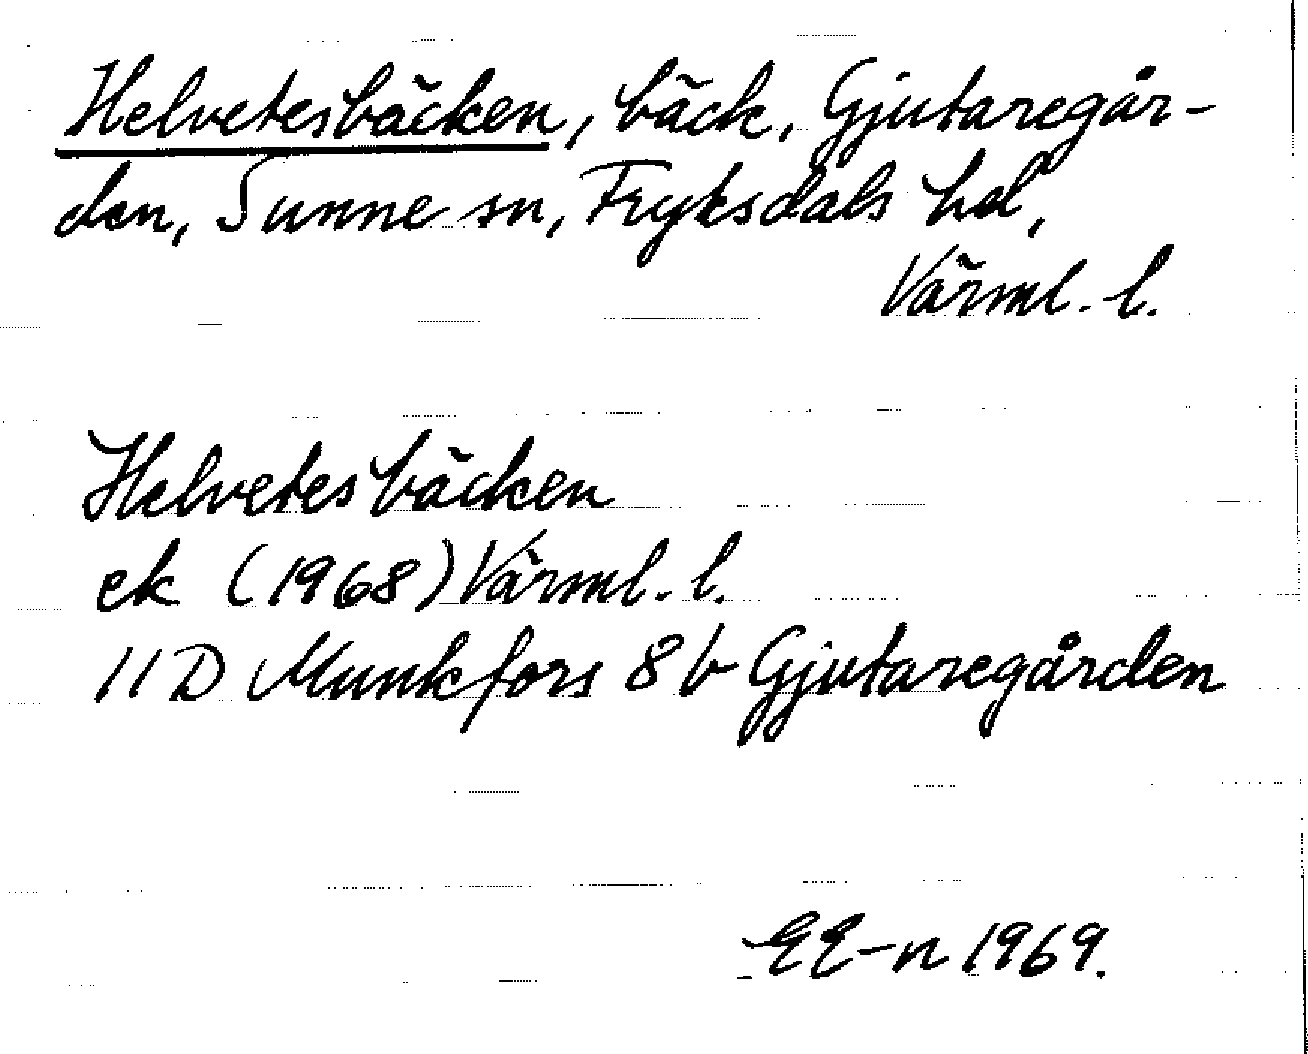 Helvetesbäcken, bäck, Gjutaregår-
den, Sunne sn, Fryksdals hd,
Värml. l.
Helvetesbäcken
ek (1968) Värml. l.
11D Munkfors 8b Gjutaregården
EE-n 1969.